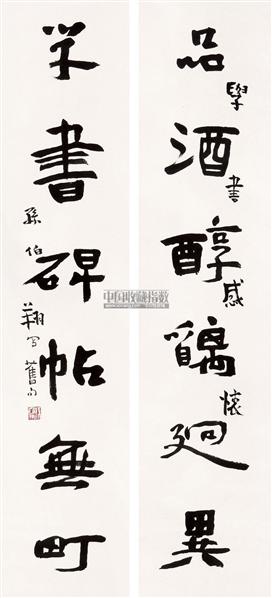 品酒醇醨迥異
學書感懷
学書碑帖無町
孫伯翔写舊句
中国收藏指数